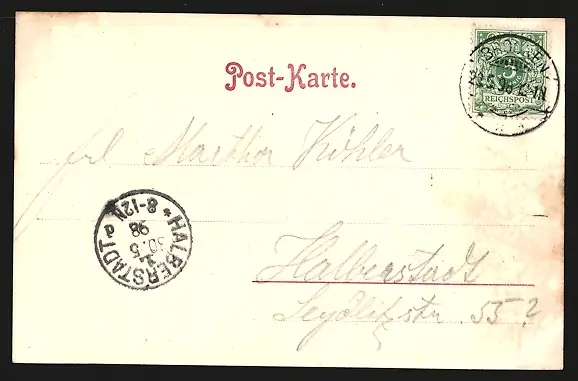 Post-Karte.
BROCKEN
5
REICHSPOST
Frl Marthor Köhler
HALBERSTADT
30.5
98
8-12N
Halberstadt
Seydlitzstr. 55?